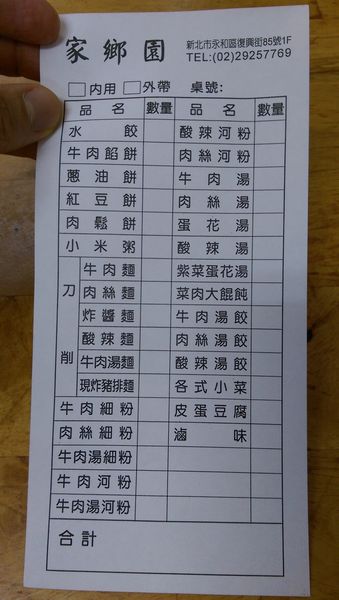 家鄉園
新北市永和區復興街85號1F
TEL:(02)29257769
內用 外帶 桌號:
品名 數量 品名 數量
水餃 酸辣河粉
牛肉餡餅 肉絲河粉
蔥油餅 牛肉湯
紅豆餅 肉絲湯
肉鬆餅 蛋花湯
小米粥 酸辣湯
刀削 牛肉麵 紫菜蛋花湯
肉絲麵 菜肉大餛飩
炸醬麵 牛肉湯餃
酸辣麵 肉絲湯餃
牛肉湯麵 酸辣湯餃
現炸豬排麵 各式小菜
牛肉細粉 皮蛋豆腐
肉絲細粉 滷味
牛肉湯細粉
牛肉河粉
牛肉湯河粉
合計